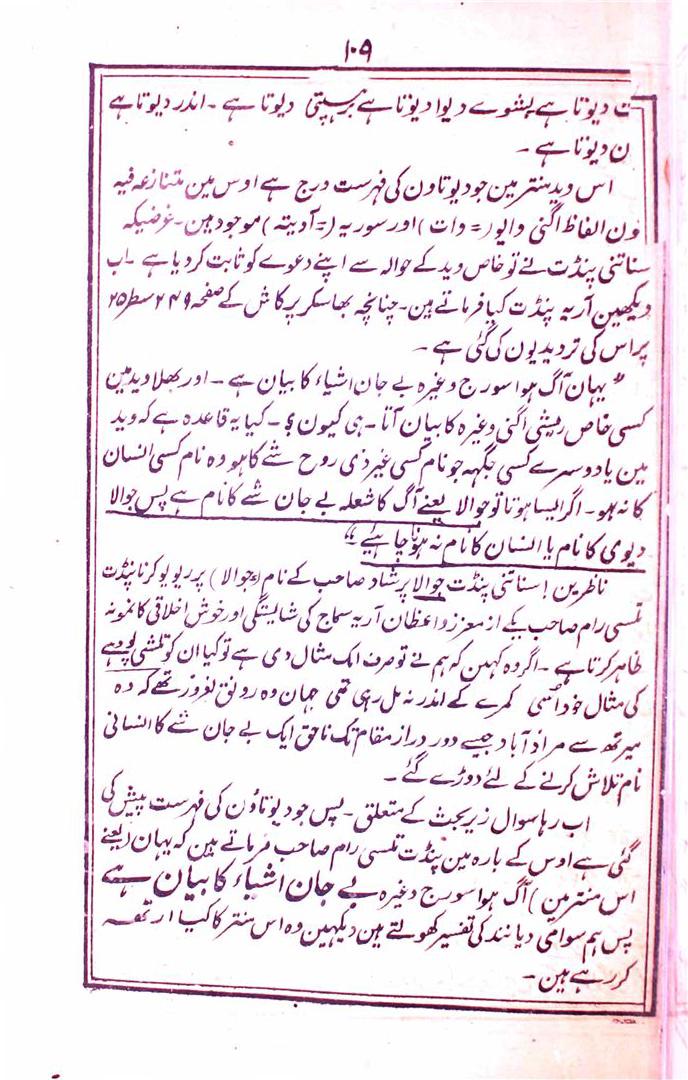 ۱۰۹
ت دیوتا ہے بشوے دیوا دیوتا ہے برہسپتی دیوتا ہے ۔ اندر دیوتا ہے
ن دیوتا ہے ۔
اس وید منتر مین جو دیوتاون کی فہرست درج ہے اوس مین متنازعہ فیہ
ون الفاظ اگنی وایو (= وات) اور سوریہ (= آدیتہ) موجود ہین ۔ غرضیکہ
سناتنی پنڈت نے تو خاص وید کے حوالہ سے اپنے دعوے کو ثابت کر دیا ہے ۔ اب
دیکھین آریہ پنڈت کیا فرماتے ہین ۔ چنانچہ بھاسکر پرکاش کے صفحہ ۲۴۹ سطر ۲۵
پر اس کی تردید یون کی گئی ہے ۔
” یہان آگ ہوا سورج وغیرہ بے جان اشیاء کا بیان ہے ۔ اور بھلا وید مین
کسی خاص ریشی اگنی وغیرہ کا بیان آتا ۔ ہی کیون ؟ ۔ کیا یہ قاعدہ ہے کہ وید
مین یا دوسرے کسی جگہہ جو نام کسی غیر ذی روح شے کا ہو وہ نام کسی انسان
کا نہ ہو ۔ اگر ایسا ہوتا تو جوالا یعنے آگ کا شعلہ بے جان شے کا نام ہے پس جوالا
دیوی کا نام یا انسان کا نام نہ ہونا چاہئیے “
ناظرین ! سناتنی پنڈت جوالا پرشاد صاحب کے نام (جوالا) پر ریویو کرنا پنڈت
تلسی رام صاحب یکے از معزز واعظان آریہ سماج کی شایستگی اور خوش اخلاقی کا نمونہ
ظاہر کرتا ہے ۔ اگر وہ کہین کہ ہم نے تو صرف اک مثال دی ہے تو کیا ان کو تلسی پودہے
کی مثال خود اسی کمرے کے اندر نہ مل رہی تھی جہان وہ رونق افروز تھے کہ وہ
میرٹھ سے مرادآباد جیسے دور دراز مقام تک ناحق ایک بے جان شے کا انسانی
نام تلاش کرنے کے لئے دوڑے گئے ۔
اب رہا سوال زیر بحث کے متعلق ۔ پس جو دیوتاؤن کی فہرست پیش کی
گئی ہے اوس کے بارہ مین پنڈت تلسی رام صاحب فرماتے ہین کہ یہان (یعنے
اس منتر مین) آگ ہوا سورج وغیرہ بے جان اشیاء کا بیان ہے
پس ہم سوامی دیانند کی تفسیر کھولتے ہین دیکھین وہ اس منتر کا کیا ارتھ
کر رہے ہین ۔